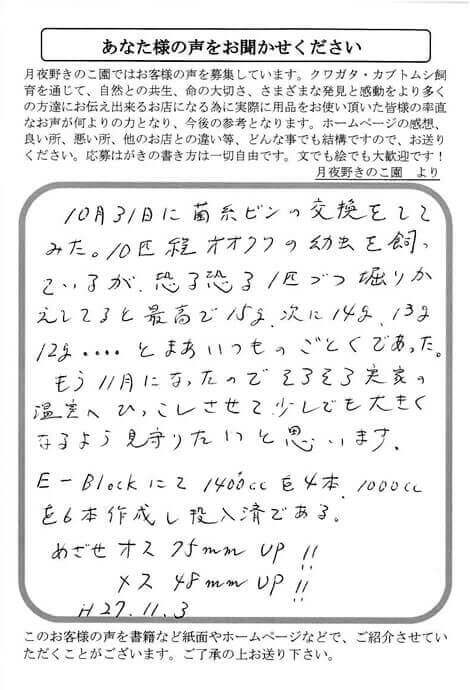 あなた様の声をお聞かせください
月夜野きのこ園ではお客様の声を募集しています。クワガタ・カブトムシ飼
育を通じて、自然との共生、命の大切さ、さまざまな発見と感動をより多く
の方達にお伝え出来るお店になる為に実際に用品をお使い頂いた皆様の率直
なお声が何よりの力となり、今後の参考となります。ホームページの感想、
良い所、悪い所、他のお店との違い等、どんな事でも結構ですので、お送り
ください。応募はがきの書き方は一切自由です。文でも絵でも大歓迎です！
月夜野きのこ園 より
10月31日に菌糸ビンの交換をして
みた。10匹程オオクワの幼虫を飼っ
ているが、恐る恐る1匹づつ堀りか
えしてると最高で15g、次に14g、13g
12g・・・・とまあいつものごとくであった。
もう11月になったのでそろそろ実家の
温室へひっこしさせて少しでも大きく
なるよう見守りたいと思います。
E-Blockにて1400ccを4本、1000cc
を6本作成し投入済である。
めざせオス75mm UP!!
メス48mm UP!!
H27.11.3
このお客様の声を書籍など紙面やホームページなどで、ご紹介させてい
ただくことがございます。ご了承の上お送り下さい。